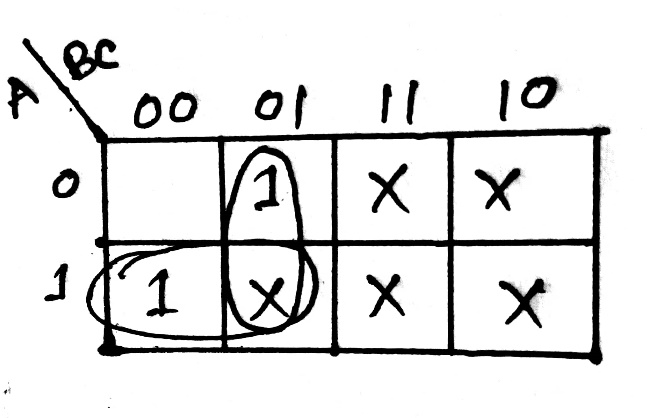 A BC
00 01 11 10
0 1 X X
1 1 X X X